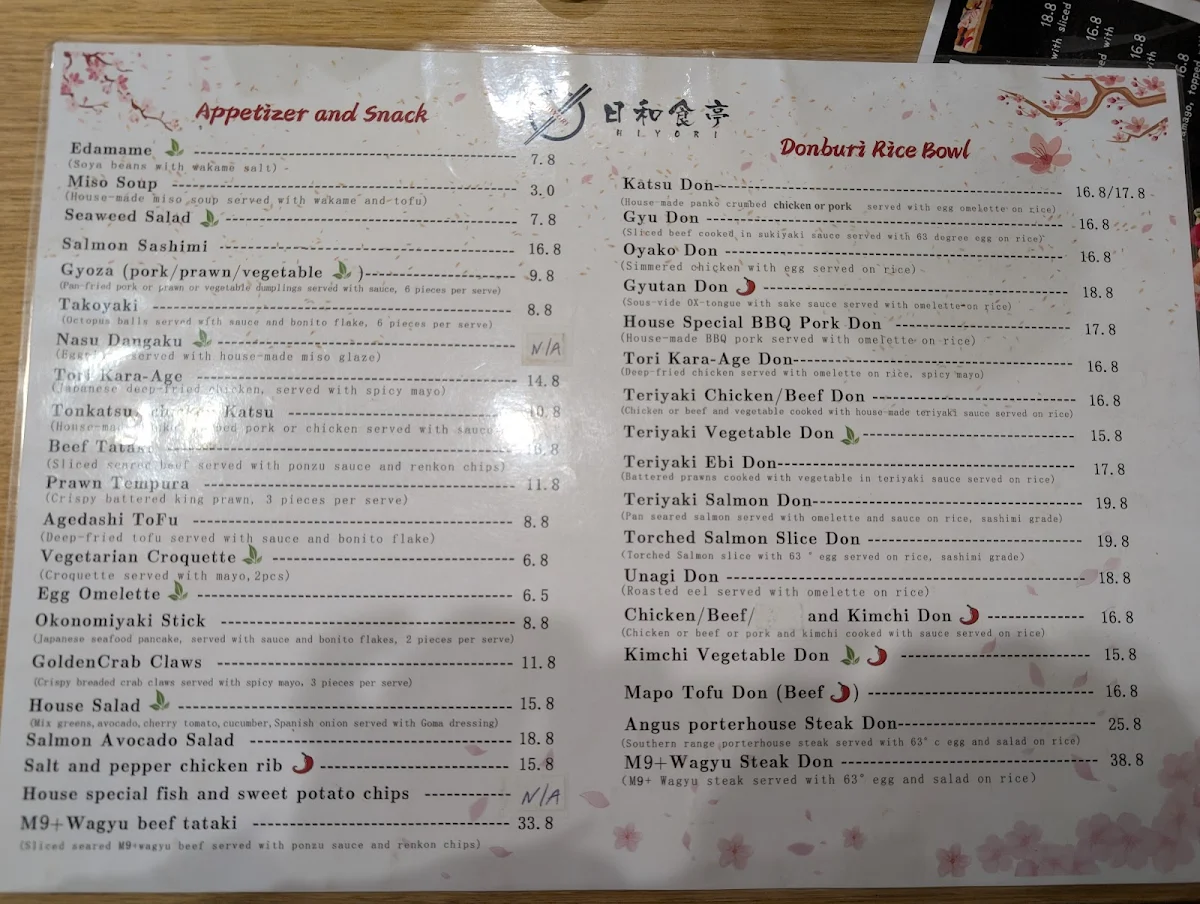 Appetizer and Snack
Edamame 7.8
(Soya beans with wakame salt)
Miso Soup 3.0
(House-made miso soup served with wakame and tofu)
Seaweed Salad 7.8
Salmon Sashimi 16.8
Gyoza (pork/prawn/vegetable ) 9.8
(Pan-fried pork or prawn or vegetable dumplings served with sauce, 6 pieces per serve)
Takoyaki 8.8
(Octopus balls served with sauce and bonito flake, 6 pieces per serve)
Nasu Dangaku N/A
served with house-made miso glaze)
Tori Kara-Age 14.8
(Japanese deep-fried chicken, served with spicy mayo)
Tonkatsu Katsu
pork or chicken served with
Beef Tataki
(Sliced seared beef served with ponzu sauce and renkon chips)
Prawn Tempura 11.8
(Crispy battered king prawn, 3 pieces per serve)
Agedashi ToFu 8.8
(Deep-fried tofu served with sauce and bonito flake)
Vegetarian Croquette 6.8
(Croquette served with mayo, 2pcs)
Egg Omelette 6.5
Okonomiyaki Stick 8.8
(Japanese seafood pancake, served with sauce and bonito flakes, 2 pieces per serve)
GoldenCrab Claws 11.8
(Crispy breaded crab claws served with spicy mayo, 3 pieces per serve)
House Salad 15.8
(Mix greens, avocado, cherry tomato, cucumber, Spanish onion served with Goma dressing)
Salmon Avocado Salad 18.8
Salt and pepper chicken rib 15.8
House special fish and sweet potato chips N/A
M9+Wagyu beef tataki 33.8
(Sliced seared M9+wagyu beef served with ponzu sauce and renkon chips)
日和食亭
HIYORI
Donburi Rice Bowl
Katsu Don 16.8/17.8
(House-made panko crumbed chicken or pork served with egg omelette on rice)
Gyu Don 16.8
(Sliced beef cooked in sukiyaki sauce served with 63 degree egg on rice)
Oyako Don 16.8
(Simmered chicken with egg served on rice)
Gyutan Don 18.8
(Sous-vide OX-tongue with sake sauce served with omelette on rice)
House Special BBQ Pork Don 17.8
(House-made BBQ pork served with omelette on rice)
Tori Kara-Age Don 16.8
(Deep-fried chicken served with omelette on rice, spicy mayo)
Teriyaki Chicken/Beef Don 16.8
(Chicken or beef and vegetable cooked with house-made teriyaki sauce served on rice)
Teriyaki Vegetable Don 15.8
Teriyaki Ebi Don 17.8
(Battered prawns cooked with vegetable in teriyaki sauce served on rice)
Teriyaki Salmon Don 19.8
(Pan seared salmon served with omelette and sauce on rice, sashimi grade)
Torched Salmon Slice Don 19.8
(Torched Salmon slice with 63 ° egg served on rice, sashimi grade)
Unagi Don 18.8
(Roasted eel served with omelette on rice)
Chicken/Beef/ and Kimchi Don 16.8
(Chicken or beef or pork and kimchi cooked with sauce served on rice)
Kimchi Vegetable Don 15.8
Mapo Tofu Don (Beef ) 16.8
Angus porterhouse Steak Don 25.8
(Southern range porterhouse steak served with 63° c egg and salad on rice)
M9+Wagyu Steak Don 38.8
(M9+ Wagyu steak served with 63° egg and salad on rice)
18.8
with sliced
16.8
with
16.8
with
16.8
topped